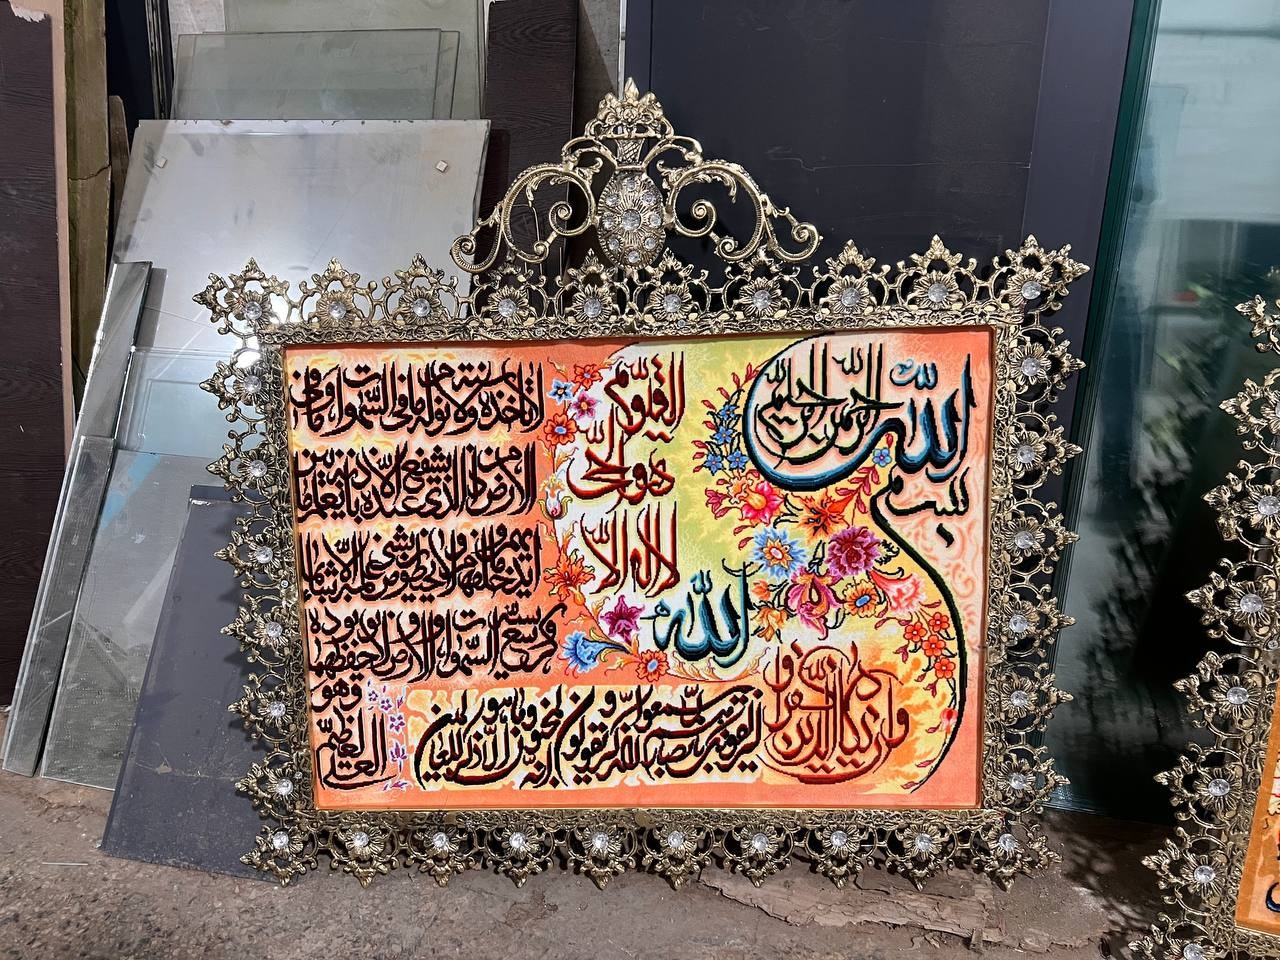 بسم الله الرحمن الرحيم
الله
لا اله الا
هو الحي
القيوم
لا تاخذه سنة ولا نوم له ما في السموات وما في
الارض من ذا الذي يشفع عنده الا باذنه يعلم ما بين
ايديهم وما خلفهم ولا يحيطون بشيء من علمه الا بما شاء
وسع كرسيه السموات والارض ولا يوده حفظهما
وهو
العلي العظيم
وان يكاد الذين كفروا
ليزلقونك بابصارهم لما سمعوا الذكر ويقولون انه لمجنون وما هو الا ذكر للعالمين